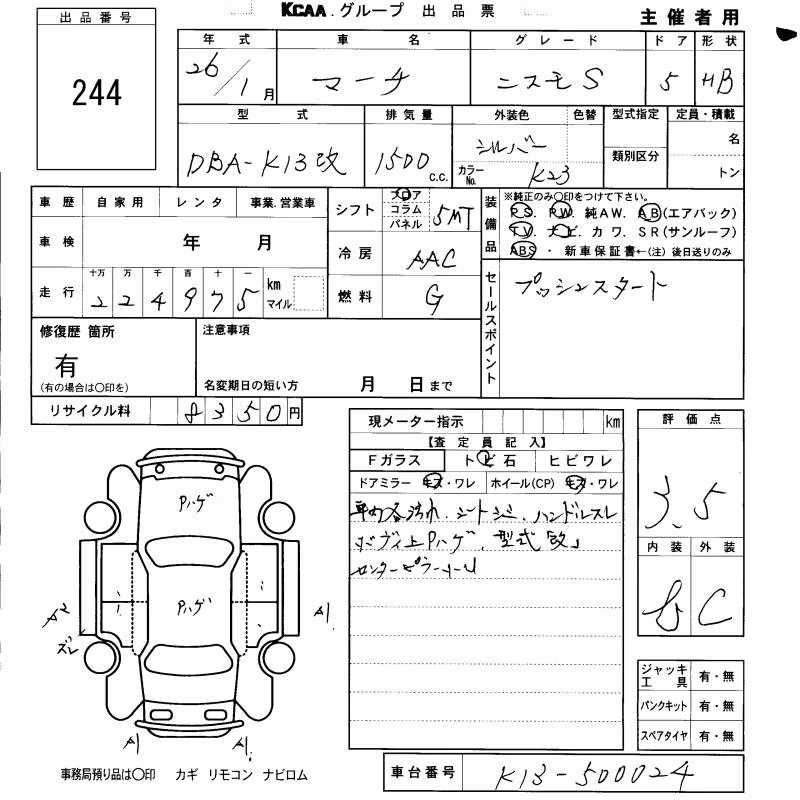 出品番号
KCAA.グループ 出品票
主催者用
244
年式 車名 グレード ドア 形状
26/1月 マーチ ニスモS 5 HB
型式 排気量 外装色 色替 型式指定 定員・積載
DBA-K13改 1500c.c. シルバー カラーNo. K23 類別区分 名 トン
車歴 自家用 レンタ 事業.営業車
シフト フロア コラム パネル 5MT
装備品 ※純正のみ〇印をつけて下さい。
PS. PW. 純AW. AB(エアバック)
TV. ナビ. カワ. SR(サンルーフ)
ABS・新車保証書←(注)後日送りのみ
車検 年 月
冷房 AAC
走行 十万 万 千 百 十 一
224975 km マイル
燃料 G
セールスポイント プッシュスタート
修復歴 箇所 注意事項
有
(有の場合は〇印を) 名変期日の短い方 月 日まで
リサイクル料 8350円
現メーター指示 km
評価点
【査定員記入】
Fガラス トビ石 ヒビワレ
ドアミラー キズ・ワレ ホイール(CP) キズ・ワレ
車内各汚れ.シートシミ.ハンドルスレ
ボディ上Pハゲ.型式「改」
3.5
内装 外装
C
Pハゲ
Pハゲ
A2
ズレ
A1
A1 A1.
ジャッキ工具 有・無
パンクキット 有・無
スペアタイヤ 有・無
事務局預り品は〇印 カギ リモコン ナビロム
車台番号 K13-500024